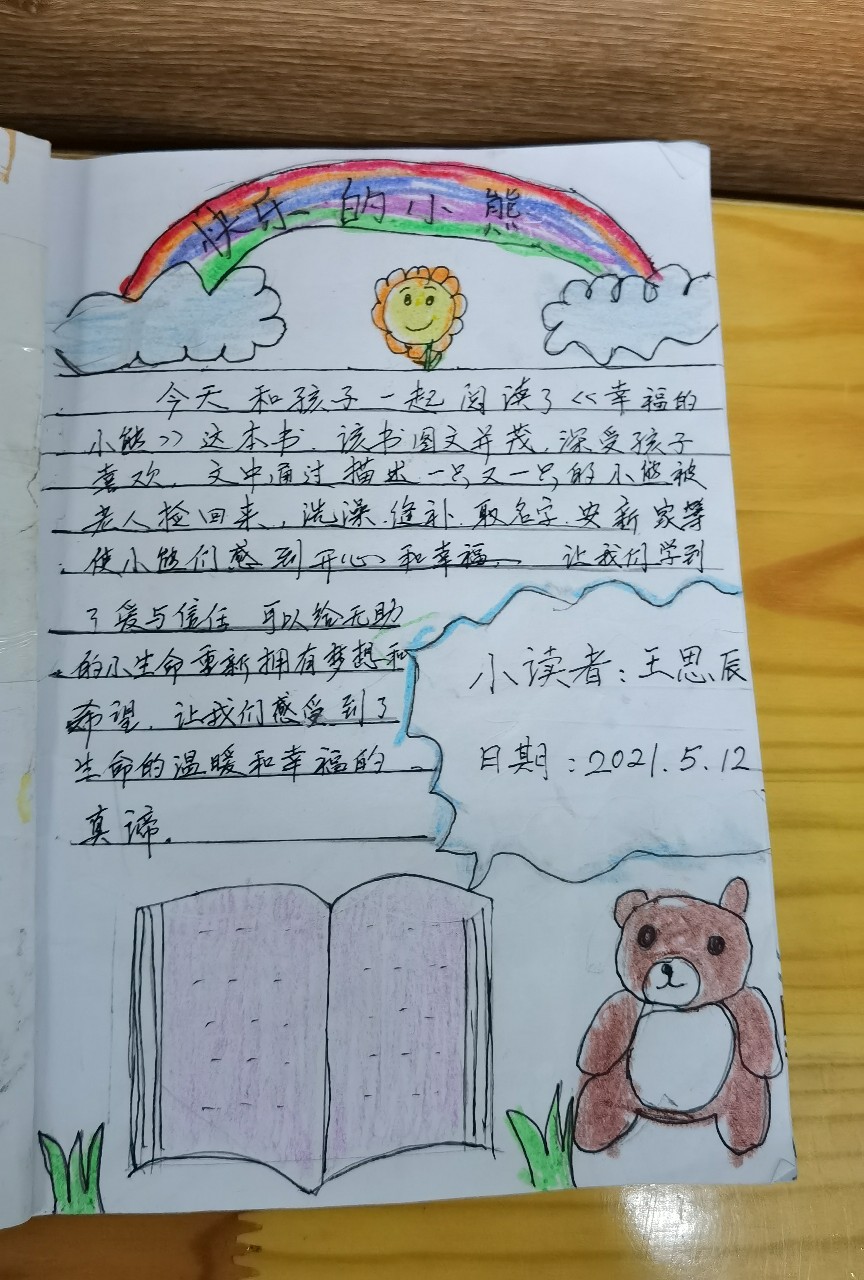 快乐的小熊
今天和孩子一起阅读了《幸福的
小熊》这本书.该书图文并茂,深受孩子
喜欢.文中通过描述一只又一只的小熊被
老人捡回来,洗澡.缝补.取名字.安新家等
使小熊们感到开心和幸福、让我们学到
了爱与信任 可以给无助
的小生命重新拥有梦想和
希望.让我们感受到了
生命的温暖和幸福的
真谛.
小读者:王思辰
日期:2021.5.12